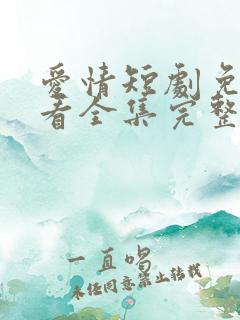 愛情短劇免
看全集完整
一直喝
未经同意禁止转载